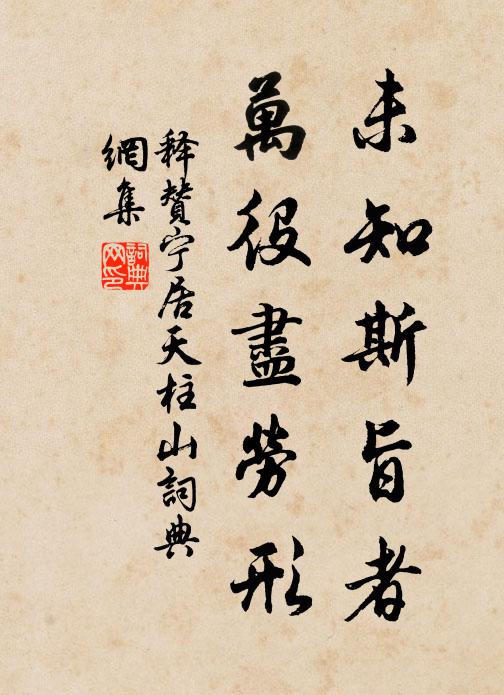 未知斯旨者
萬役盡勞形
释贊宁居天柱山詞典
網集
詞典
网印